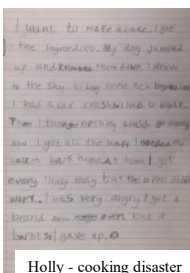 I want to make a cake. I got
the ingredins. My dog jumped
up and them down I drove
to the shop to buy some new
I had a car and had to walk.
Then I nothing could go wrong
and I got all the stuff I needed
walk it back home. At home I got
every thing redy but the oven didnt
work. I was very angry I got a
brand new oven but it
burnt so I gave up.
Holly - cooking disaster